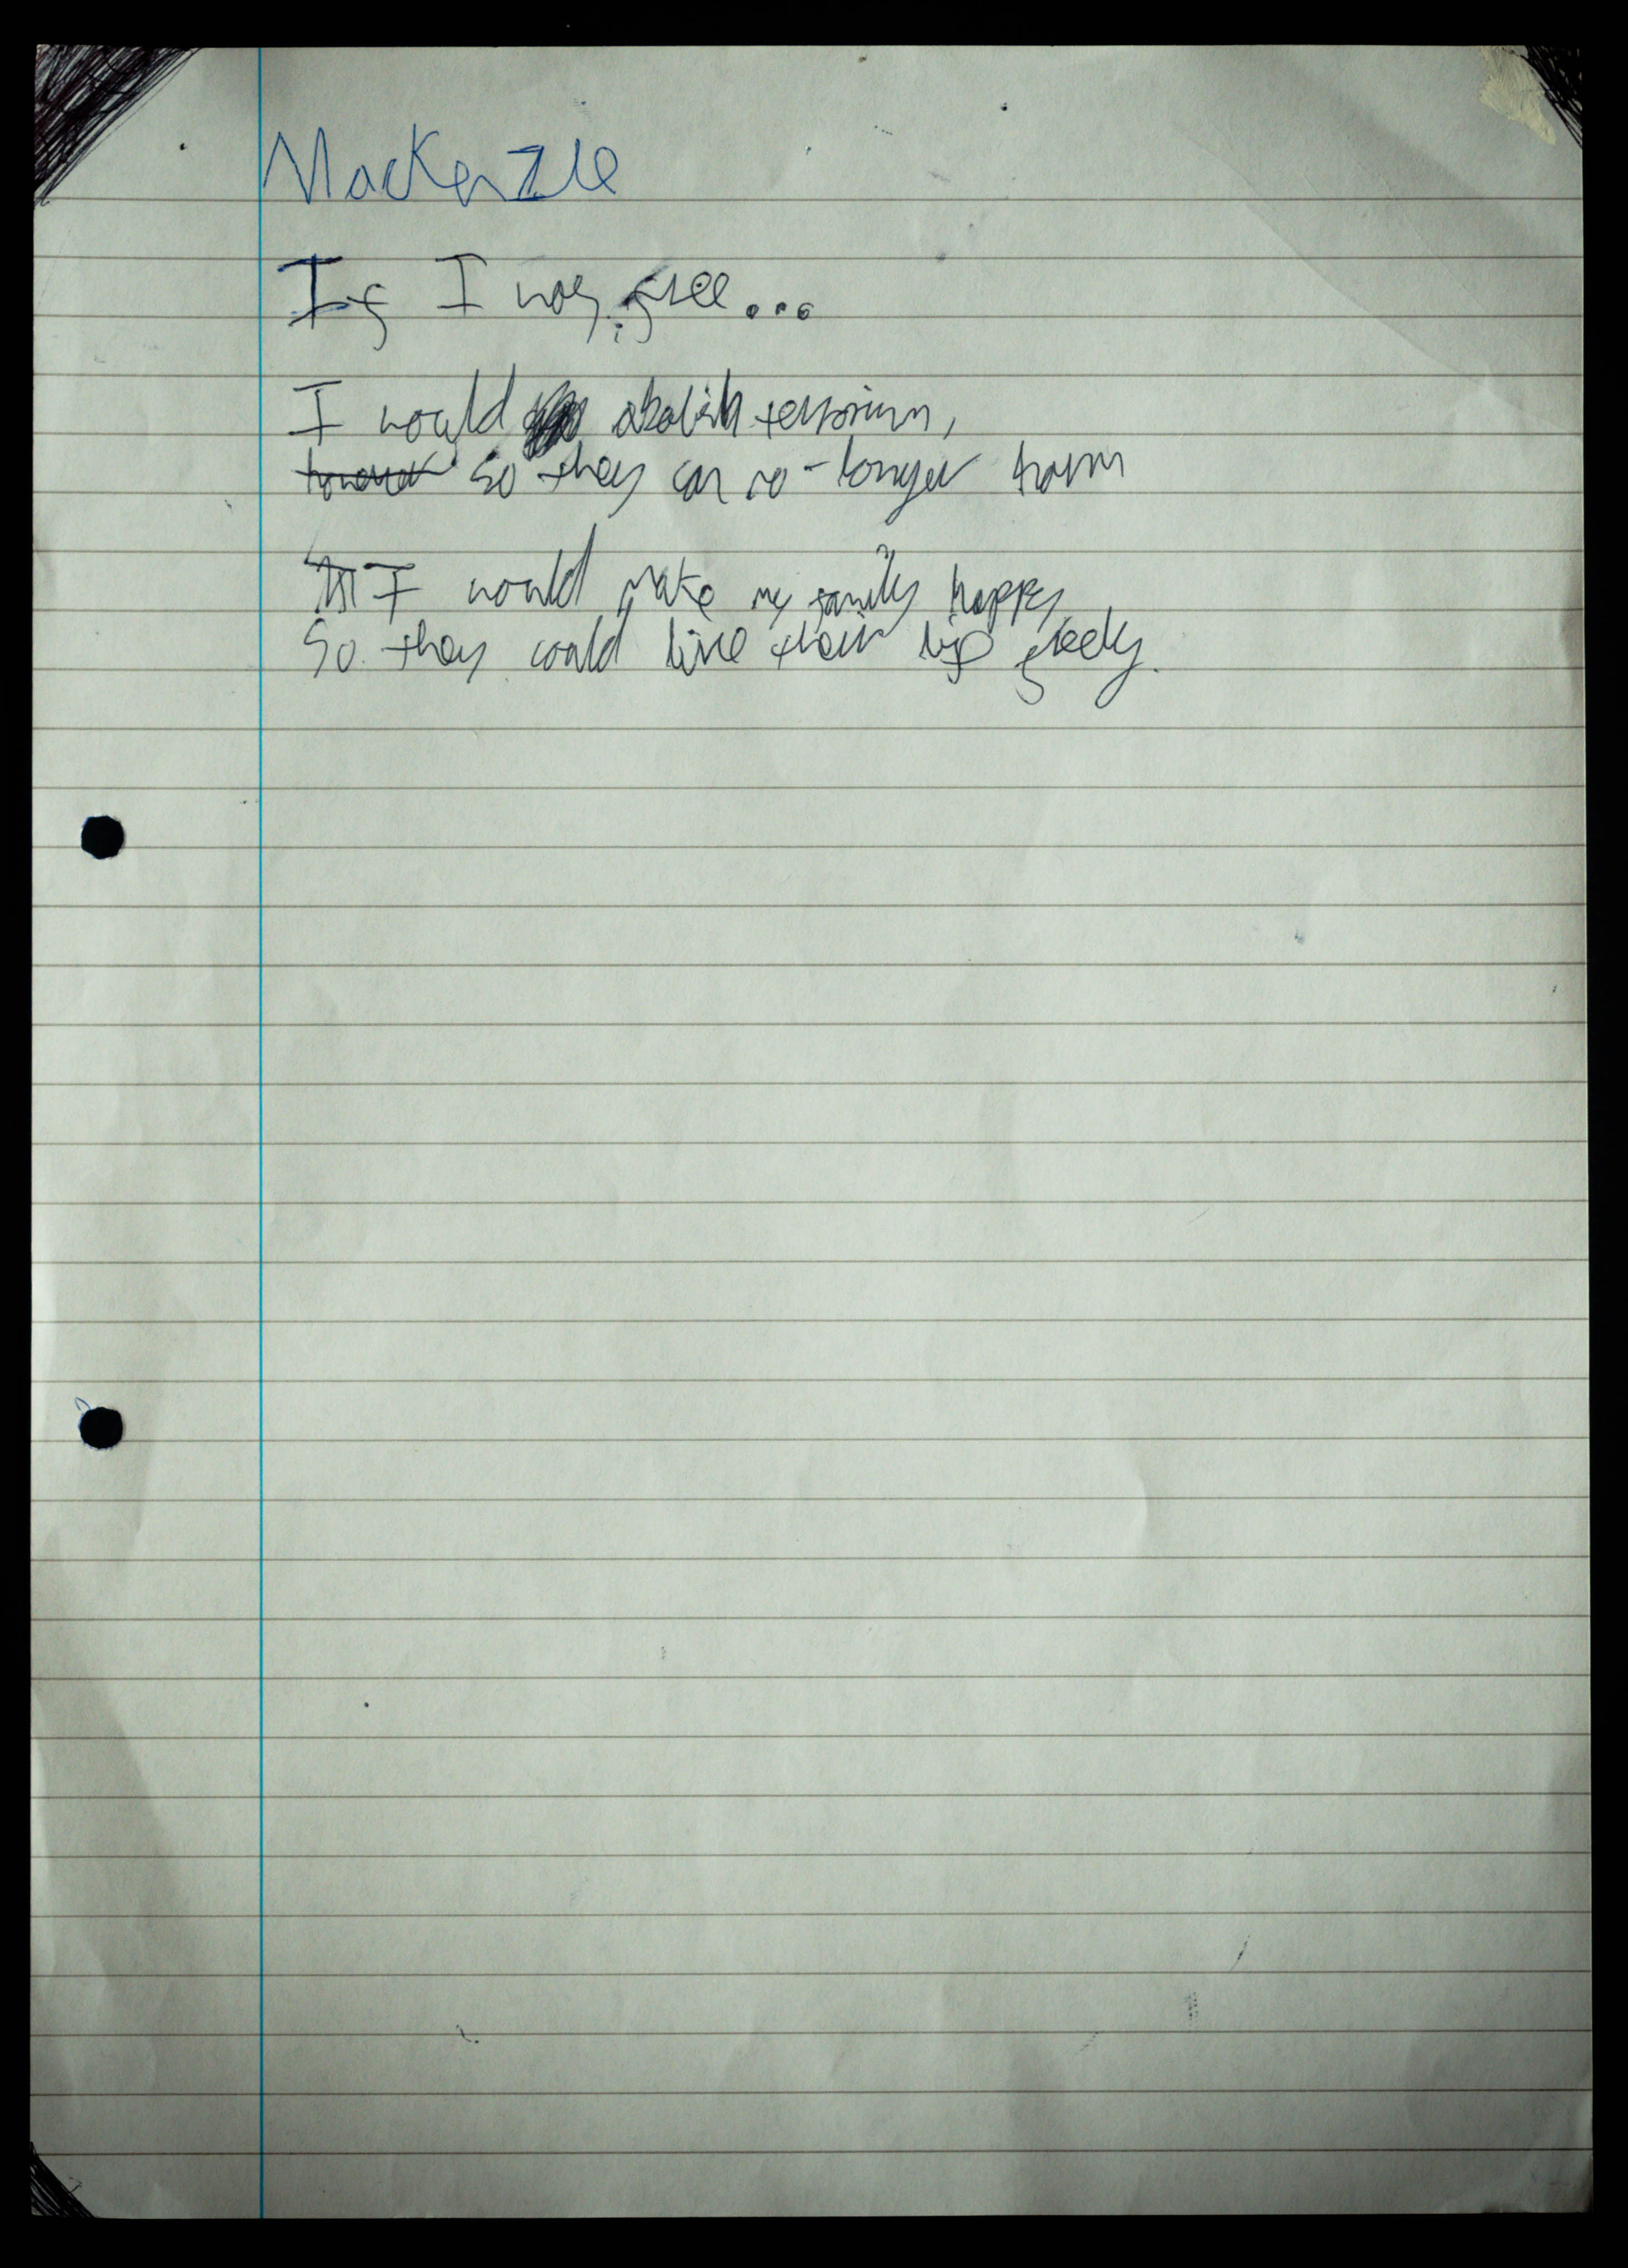 Mackenzie
If I was free...
I would abolish terrorism,
so they can no-longer harm
I would make my family happy,
So they could live their life freely.